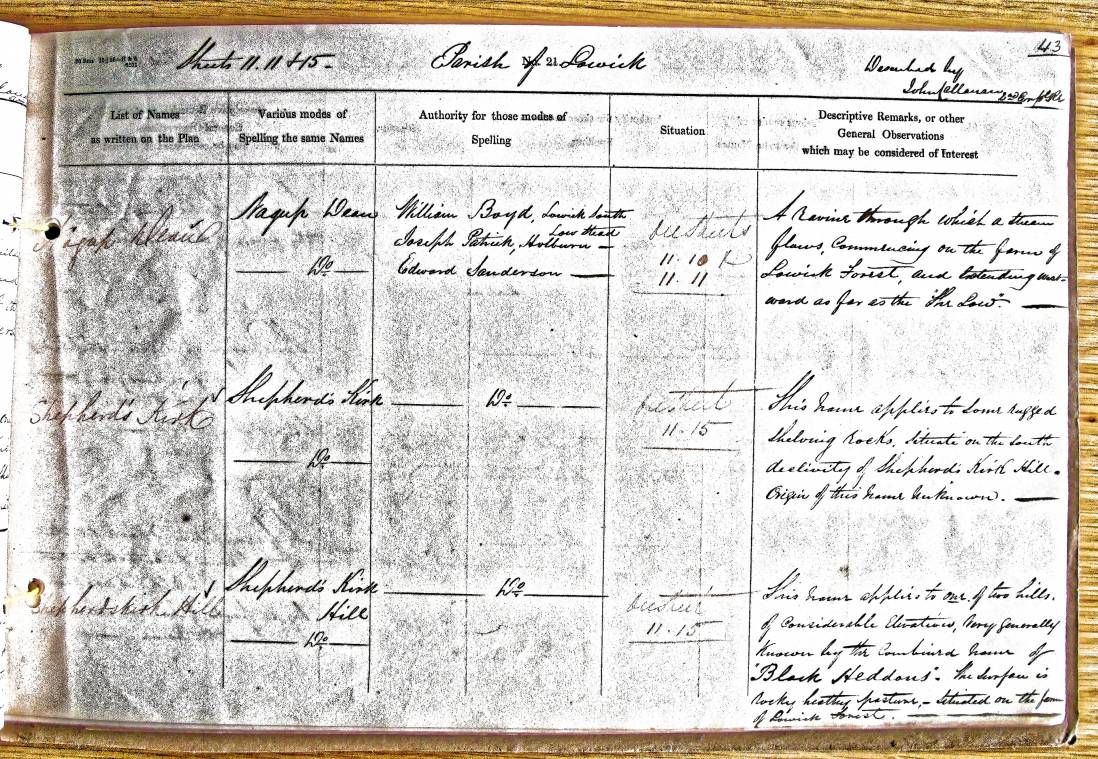 43
Sheets 11. 11 & 15 -
Parish of Lowick
No. 21.
Described by
John Callanan 2nd Corpl RE
List of Names
as written on the Plan
Various modes of
Spelling the same Names
Authority for those modes of
Spelling
Situation
Descriptive Remarks, or other
General Observations
which may be considered of Interest
Nagup Dean
Do
William Boyd, Lowick South
Low Stead
Joseph Patrick, Holburn -
Edward Sanderson
11.10
11.11
A ravine through which a stream
flows, Commencing on the farm of
Lowick Forest, and Extending
ward as far as the "The Low".
Shepherd's Kirk
Shepherd's Kirk
Do
Do
11.15
This Name applies to Some rugged
Shelving rocks. Situate on the South
declivity of Shepherd's Kirk Hill.
Origin of this Name Unknown.
Shepherdskirk Hill
Shepherd's Kirk
Hill
Do
Do
11.15
This Name applies to one of two hills.
of Considerable Elevations, Very generally
Known by the Combined Name of
"Black Heddons". The Surface is
rocky heathy pasture, - Situated on the farm
of Lowick Forest.